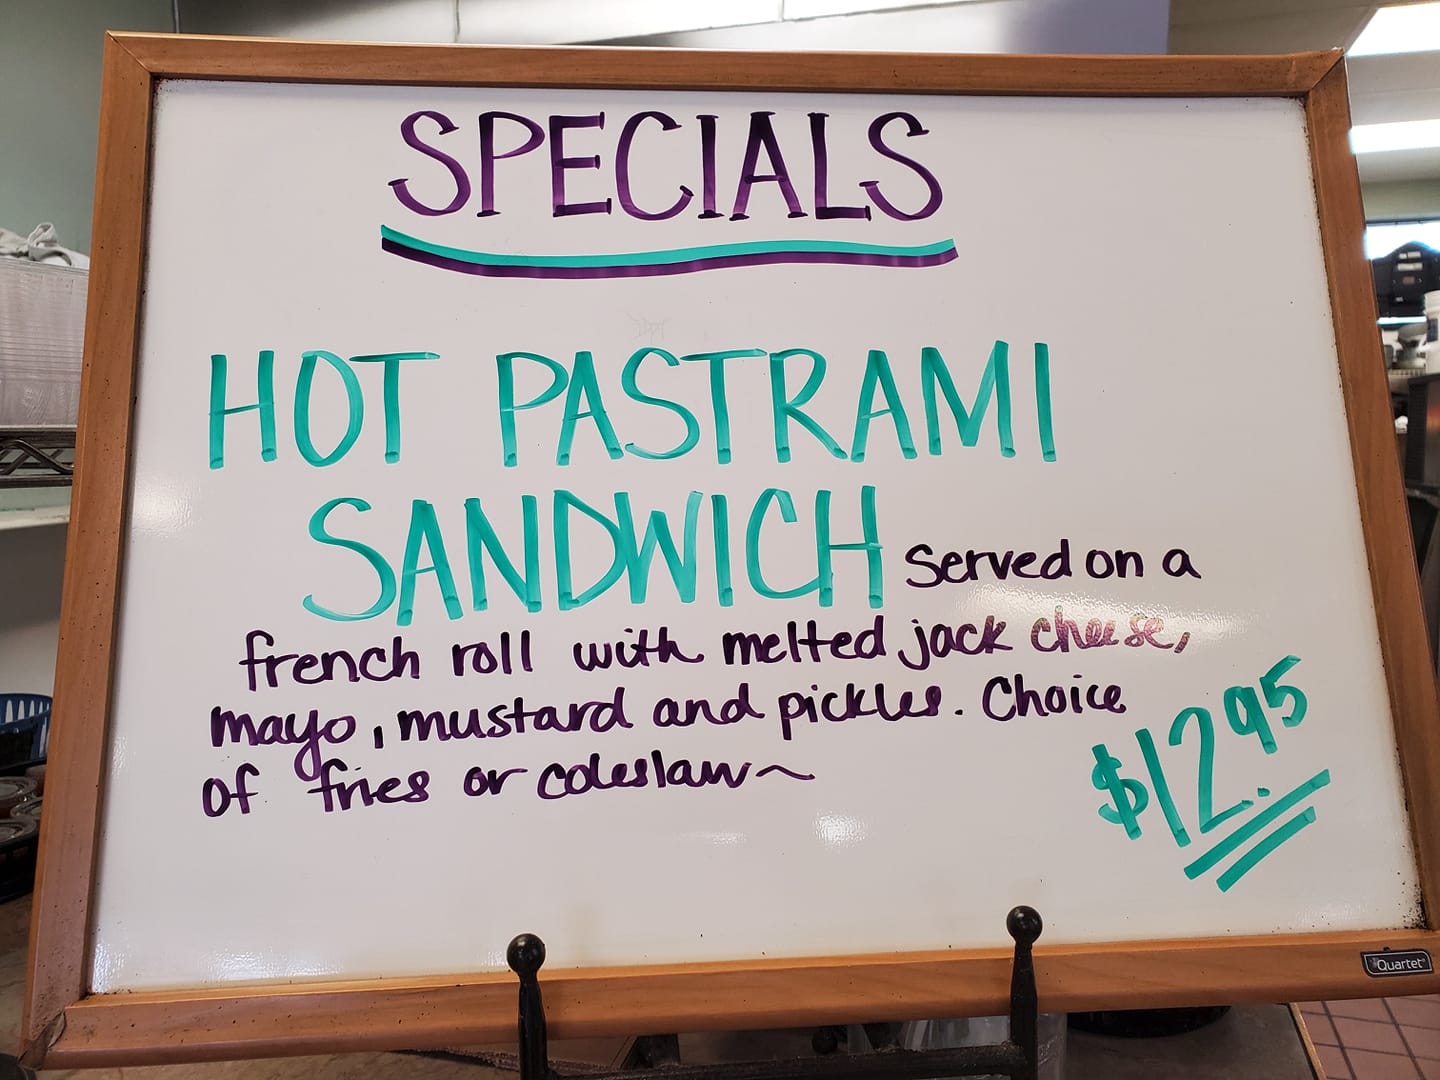 SPECIALS
HOT PASTRAMI
SANDWICH served on a
french roll with melted jack cheese,
mayo, mustard and pickles. Choice
of fries or coleslaw~
$12.95
Quartet